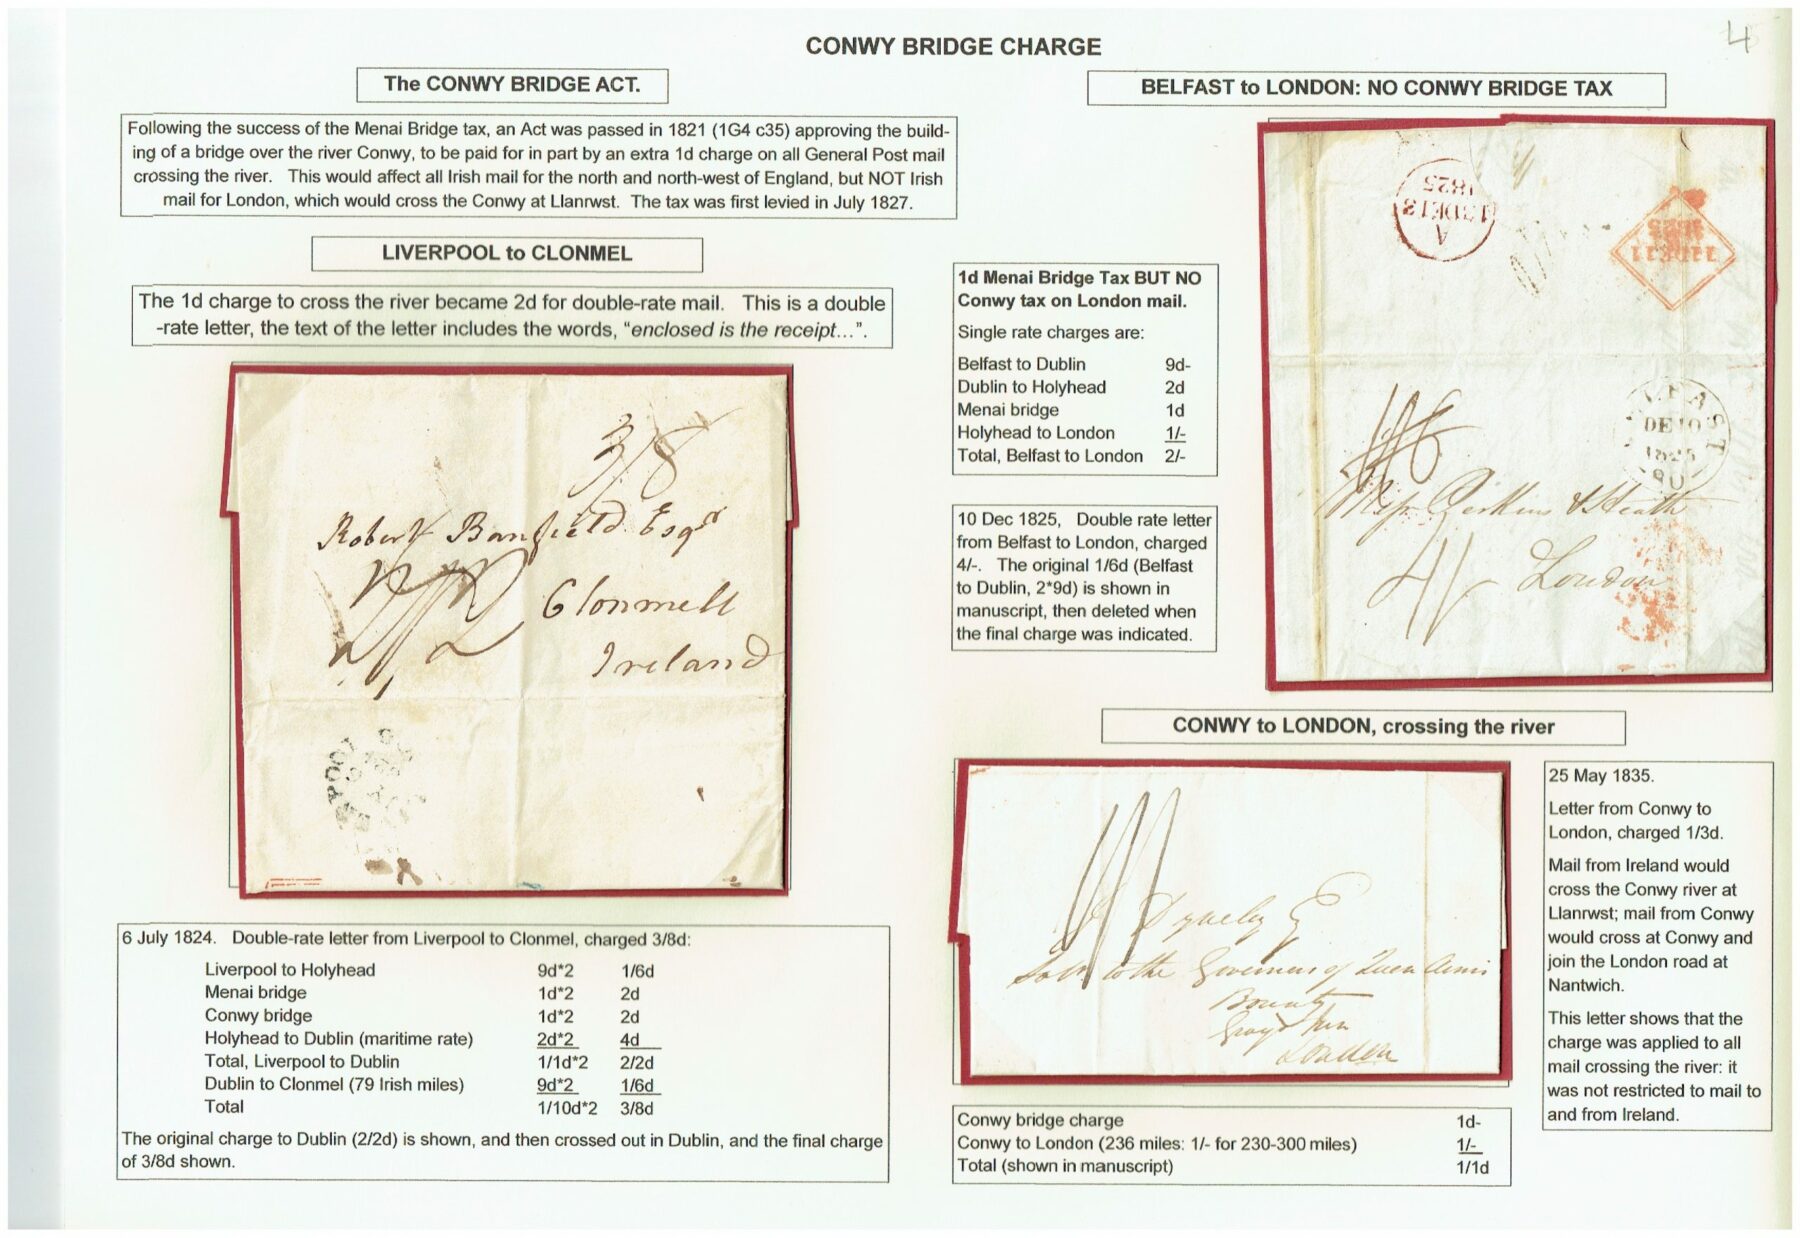 4
CONWY BRIDGE CHARGE
The CONWY BRIDGE ACT.
Following the success of the Menai Bridge tax, an Act was passed in 1821 (1G4 c35) approving the build-
ing of a bridge over the river Conwy, to be paid for in part by an extra 1d charge on all General Post mail
crossing the river. This would affect all Irish mail for the north and north-west of England, but NOT Irish
mail for London, which would cross the Conwy at Llanrwst. The tax was first levied in July 1827.
LIVERPOOL to CLONMEL
The 1d charge to cross the river became 2d for double-rate mail. This is a double
-rate letter, the text of the letter includes the words, “enclosed is the receipt...”.
3/8
Robert Banfield Esqr
2/2
Clonmell
Ireland
6 July 1824. Double-rate letter from Liverpool to Clonmel, charged 3/8d:
Liverpool to Holyhead 9d*2 1/6d
Menai bridge 1d*2 2d
Conwy bridge 1d*2 2d
Holyhead to Dublin (maritime rate) 2d*2 4d
Total, Liverpool to Dublin 1/1d*2 2/2d
Dublin to Clonmel (79 Irish miles) 9d*2 1/6d
Total 1/10d*2 3/8d
The original charge to Dublin (2/2d) is shown, and then crossed out in Dublin, and the final charge
of 3/8d shown.
BELFAST to LONDON: NO CONWY BRIDGE TAX
1d Menai Bridge Tax BUT NO
Conwy tax on London mail.
Single rate charges are:
Belfast to Dublin 9d-
Dublin to Holyhead 2d
Menai bridge 1d
Holyhead to London 1/-
Total, Belfast to London 2/-
10 Dec 1825, Double rate letter
from Belfast to London, charged
4/-. The original 1/6d (Belfast
to Dublin, 2*9d) is shown in
manuscript, then deleted when
the final charge was indicated.
A
13DE13
1825
1/6
DE 10
1825
Perkins & Heath
4/-
London
CONWY to LONDON, crossing the river
Dyneley
to the Governors of Queen Anns
Bounty
Grays Inn
London
25 May 1835.
Letter from Conwy to
London, charged 1/3d.
Mail from Ireland would
cross the Conwy river at
Llanrwst; mail from Conwy
would cross at Conwy and
join the London road at
Nantwich.
This letter shows that the
charge was applied to all
mail crossing the river: it
was not restricted to mail to
and from Ireland.
Conwy bridge charge 1d-
Conwy to London (236 miles: 1/- for 230-300 miles) 1/-
Total (shown in manuscript) 1/1d